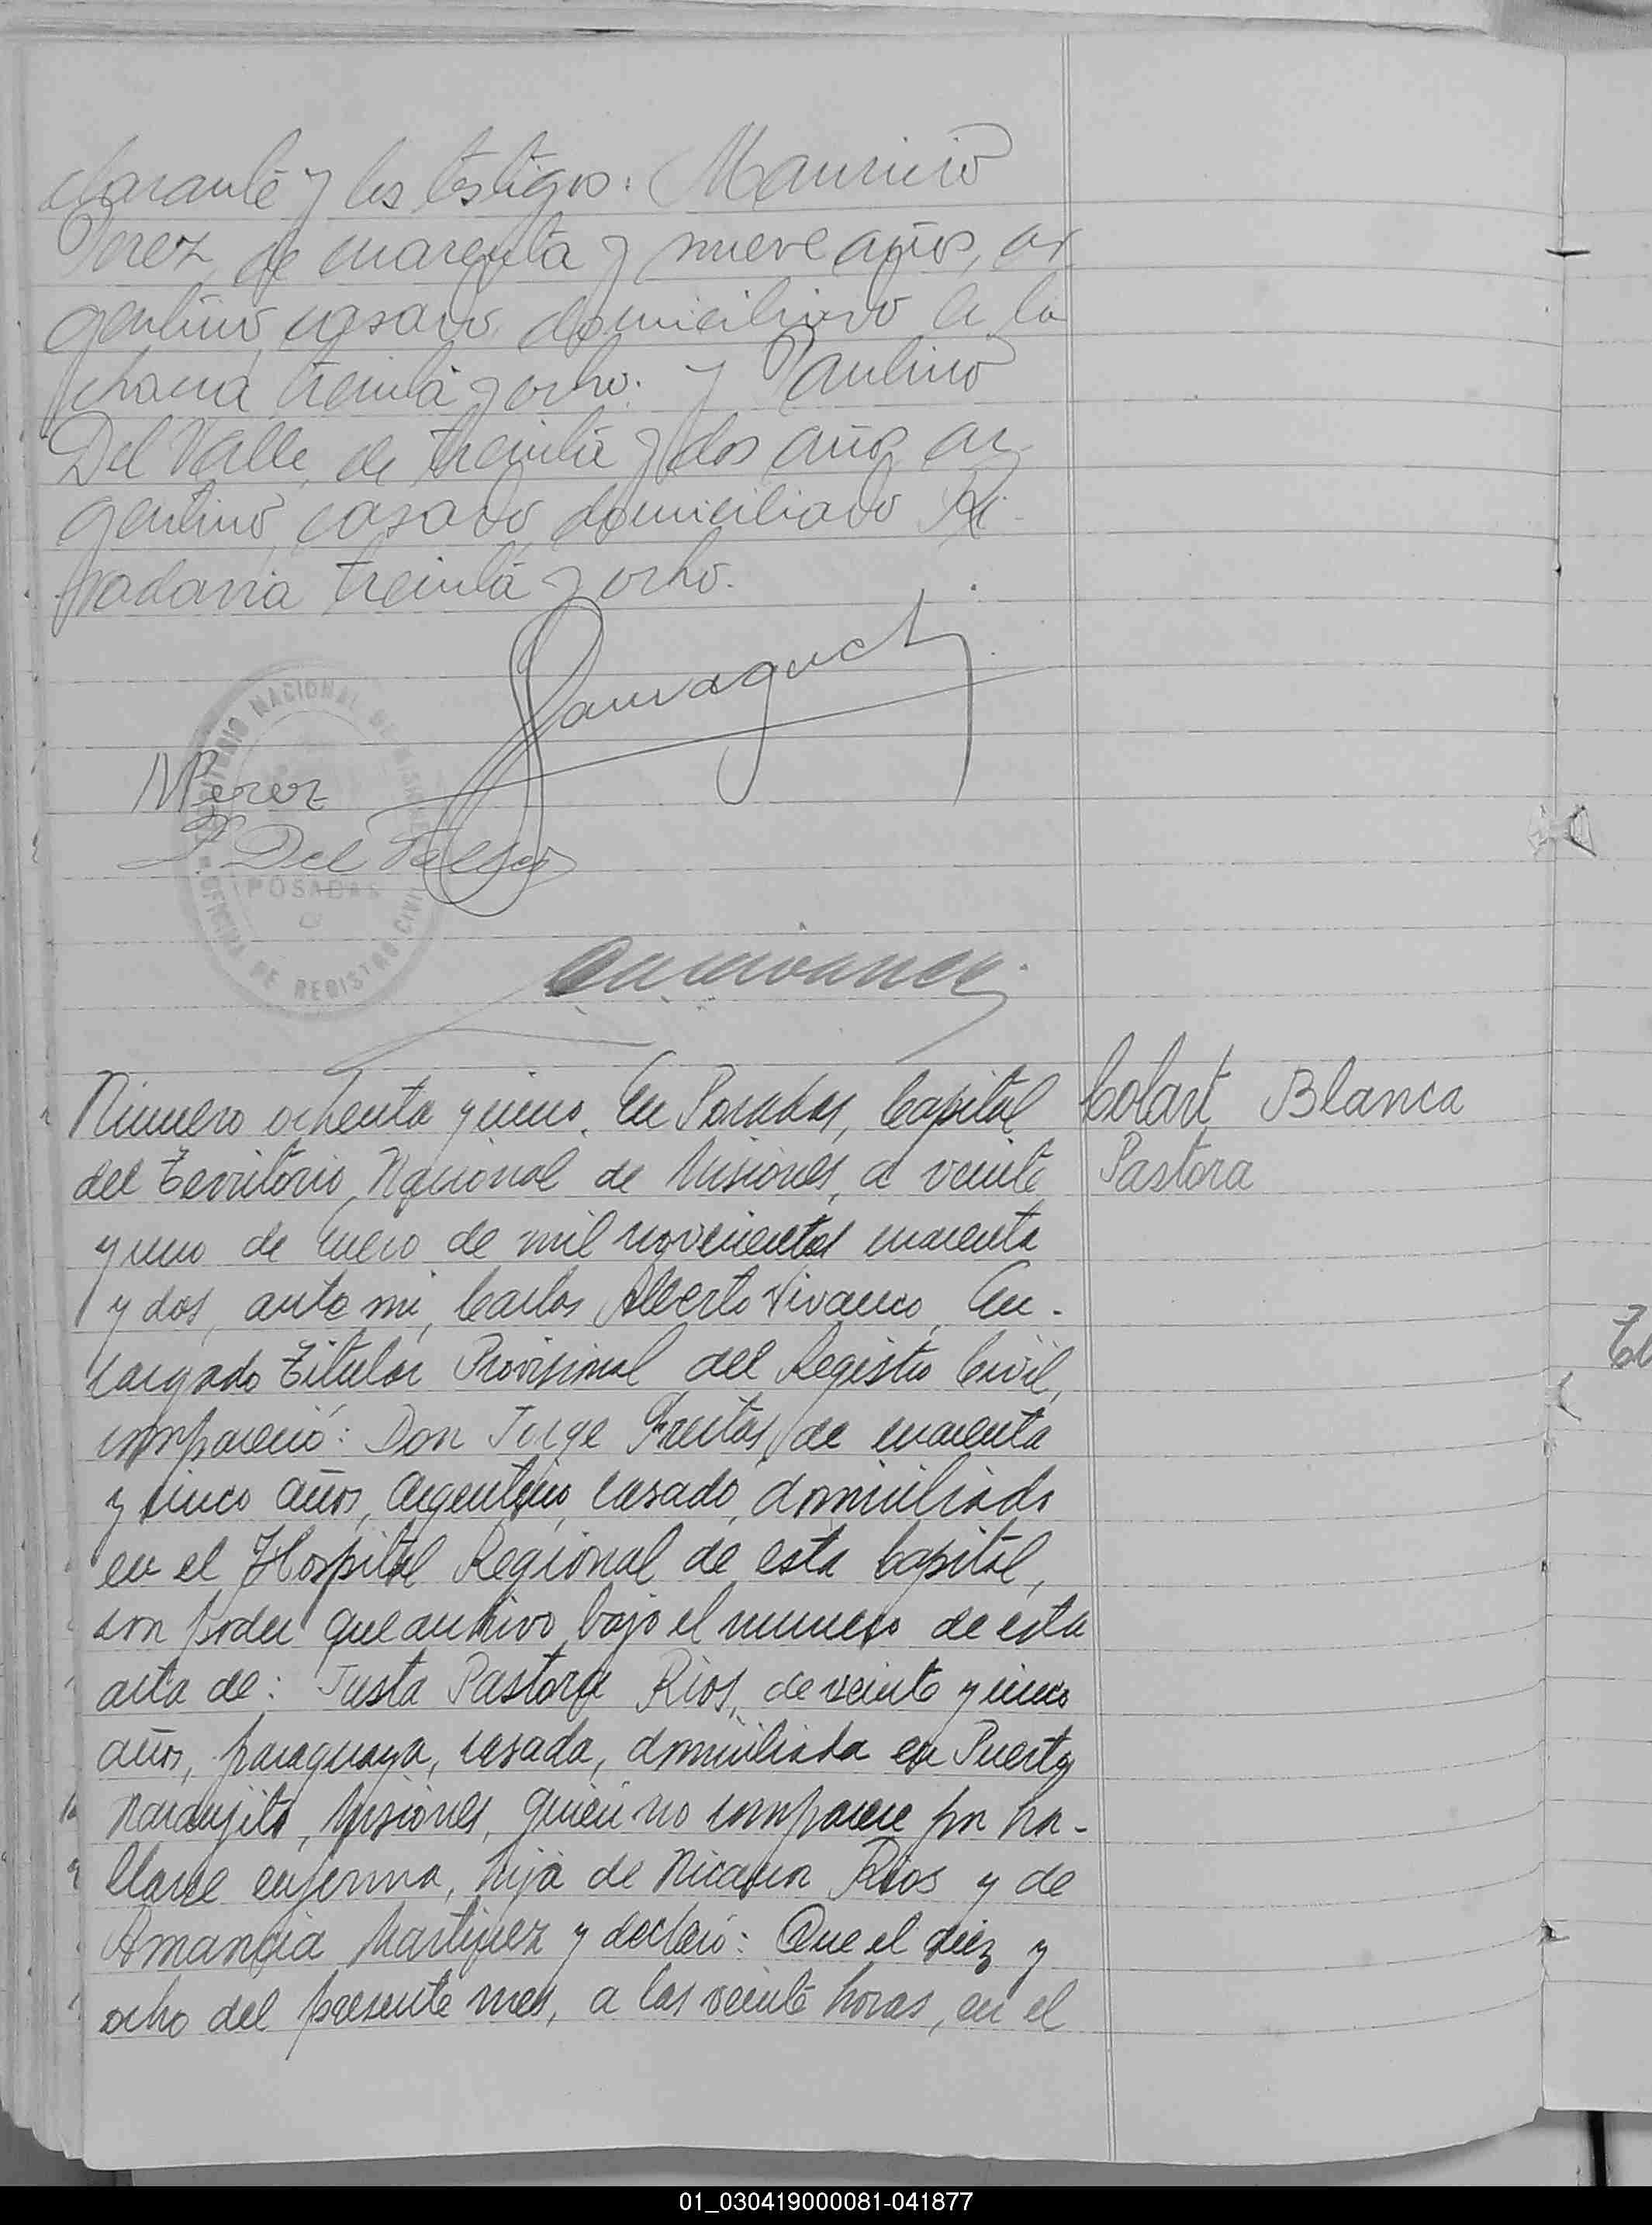 clarante y los testigos: Mauricio
Perez, de cuarenta y nueve años, ar
gentino, casado, domiciliado en la
chacra treinta y ocho. y Paulino
Del Valle, de treinta y dos años ar
gentino, casado, domiciliado Ri-
vadavia treinta y ocho.
TERRITORIO NACIONAL DE MISIONES
MPerez
P. Del Valle
POSADAS
OFICINA DE REGISTRO CIVIL
Número ochenta y cinco. En Posadas, Capital
del Territorio Nacional de Misiones, a veinte
y uno de Enero de mil novecientos cuarenta
y dos, ante mi, Carlos Alberto Vivanco, En-
cargado Titular Provisional del Registro Civil,
compareció: Don Jorge Freitas, de cuarenta
y cinco años, argentino, casado, domiciliado
en el Hospital Regional de esta Capital,
con poder que archivo bajo el numero de esta
acta de: Justa Pastora Rios, de veinte y cinco
años, paraguaya, casada, domiciliada en Puerto
Naranjito, Misiones, quien no comparece por ha-
llarse enferma, hija de Nicanor Rios y de
Amancia Martinez y declaró: Que el diez y
ocho del presente mes, a las veinte horas, en el
Colart Blanca
Pastora
01_030419000081-041877